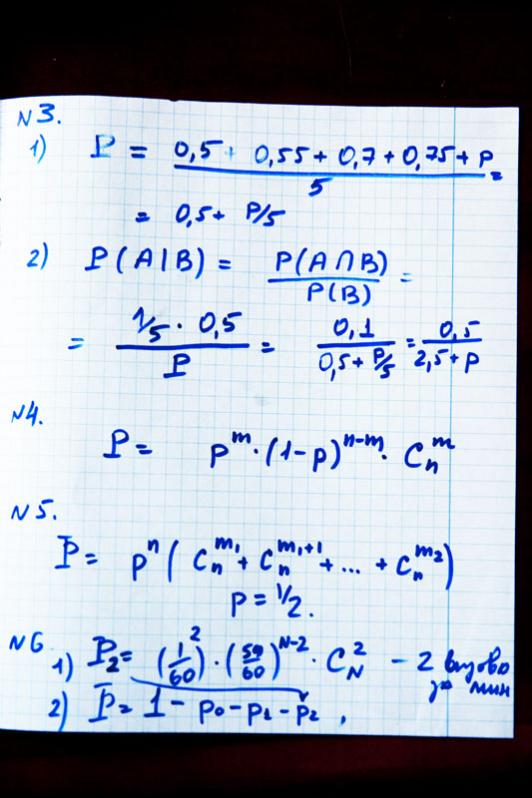 N3.
1) P = (0,5 + 0,55 + 0,7 + 0,75 + p)/5 =
= 0,5 + p/5
2) P(A|B) = P(A∩B)/P(B) =
= (1/5 · 0,5)/P = 0,1/(0,5 + p/5) = 0,5/(2,5 + p)
N4.
P = p^m · (1-p)^(n-m) · C_n^m
N5.
P = p^n ( C_n^(m_1) + C_n^(m_1+1) + ... + C_n^(m_2) )
p = 1/2.
N6
1) P_2 = (1/60)^2 · (59/60)^(N-2) · C_N^2 - 2 вызова
за мин
2) P = 1 - p_0 - p_1 - p_2 ,